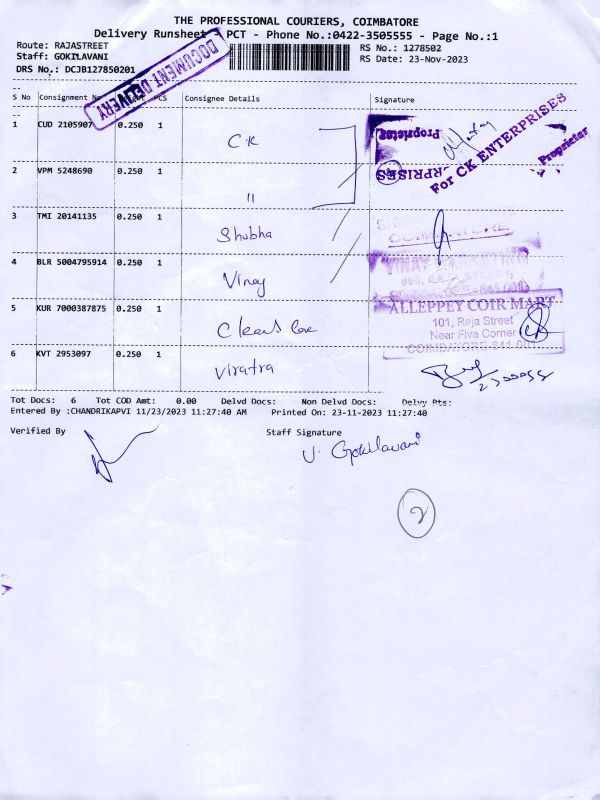 THE PROFESSIONAL COURIERS, COIMBATORE
Delivery Runsheet - PCT - Phone No.:0422-3505555 - Page No.:1
Route: RAJASTREET
RS No.: 1278502
Staff: GOKILAVANI
RS Date: 23-Nov-2023
DRS No.: DCJB127850201
DOCUMENT DELIVERY
S No Consignment PCS Consignee Details Signature
1 CUD 2105907 0.250 1 CK
Proprietor
For CK ENTERPRISES
Proprietor
2 VPM 5248690 0.250 1 "
3 TMI 20141135 0.250 1 Shobha
COIMBATORE
4 BLR 5004795914 0.250 1 Vinay
VINAY
5 KUR 7000387875 0.250 1
ALLEPPEY COIR MART
101, Raja Street
Near Five Corner
COIMBATORE-641 001
6 KVT 2953097 0.250 1 Viratra
Tot Docs: 6 Tot COD Amt: 0.00 Delvd Docs: Non Delvd Docs: Delvy Pts:
Entered By :CHANDRIKAPVI 11/23/2023 11:27:40 AM Printed On: 23-11-2023 11:27:40
Verified By Staff Signature
V. Gokilavani
2